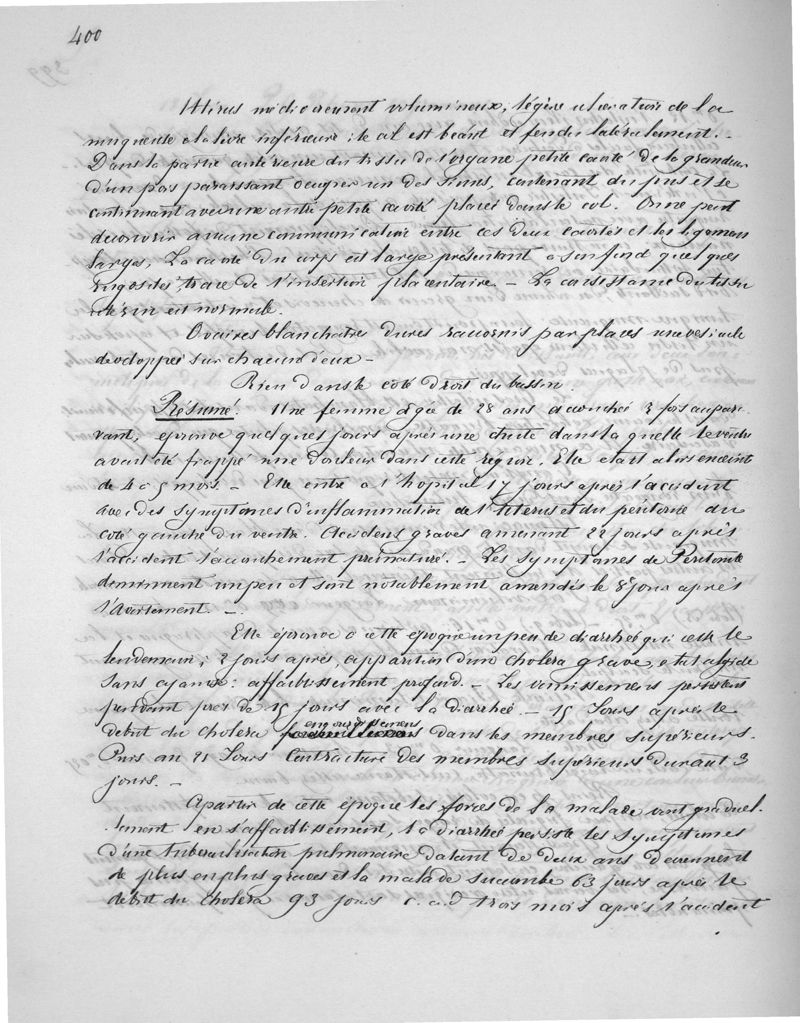 400
Utérus médiocrement volumineux, légère ulceration de la
muqueuse a la lèvre inférieure : le col est béant et fendu latéralement. -
Dans la partie antérieure du tissu de l'organe petite cavité de la grandeur
d'un pois paraissant occuper un des sinus, contenant du pus et se
continuant avec une autre petite cavité placée dans le col. On ne peut
découvrir aucune communication entre ces deux cavités et les ligamens
larges, La cavité du corps est large présentant a son fond quelques
rugosités, trace de l'insertion placentaire - La consistance du tissu
utérin est normale.
Ovaires blanchatres dures racornis par places une vesicule
developpée sur chacun d'eux -
Rien dans le coté droit du bassin.
Résumé. Une femme agée de 28 ans accouchée 3 fois aupara
vant, eprouve quelques jours après une chute dans la quelle le ventre
avait été frappé une douleur dans cette région. Elle etait alors enceinte
de 4 a 5 mois. - Elle entre a l'hopital 17 jours après l'accident
avec des symptomes d'inflammation de l'Uterus et du péritoine du
coté gauche du ventre. Accidens graves amenant 22 jours après
l'accident l'accouchement prématuré. - Les symptomes de Péritonite
diminuent un peu et sont notablement amendés le 8e jour après
l'Avortement. -
Elle éprouve a cette époque un peu de diarrhée qui cesse le
lendemain ; 2 jours après, apparition d'un cholera grave, etat algide
sans cyanose : affaiblissement profond. - Les vomissemens persistent
pendant près de 15 jours avec la diarrhée - 15 Jours après le
debut du cholera engourdissemens dans les membres supérieurs.
Puis au 21 Jours Contracture des membres supérieurs durant 3
jours. -
Apartir de cette époque les forces de la malade vont graduel-
lement en s'affaiblissement, la diarrhée persiste les symptomes
d'une tuberculisation pulmonaire datant de deux ans deviennent
de plus en plus graves et la malade succombe 63 jours après le
debut du cholera 93 jours c. a d trois mois après l'accident